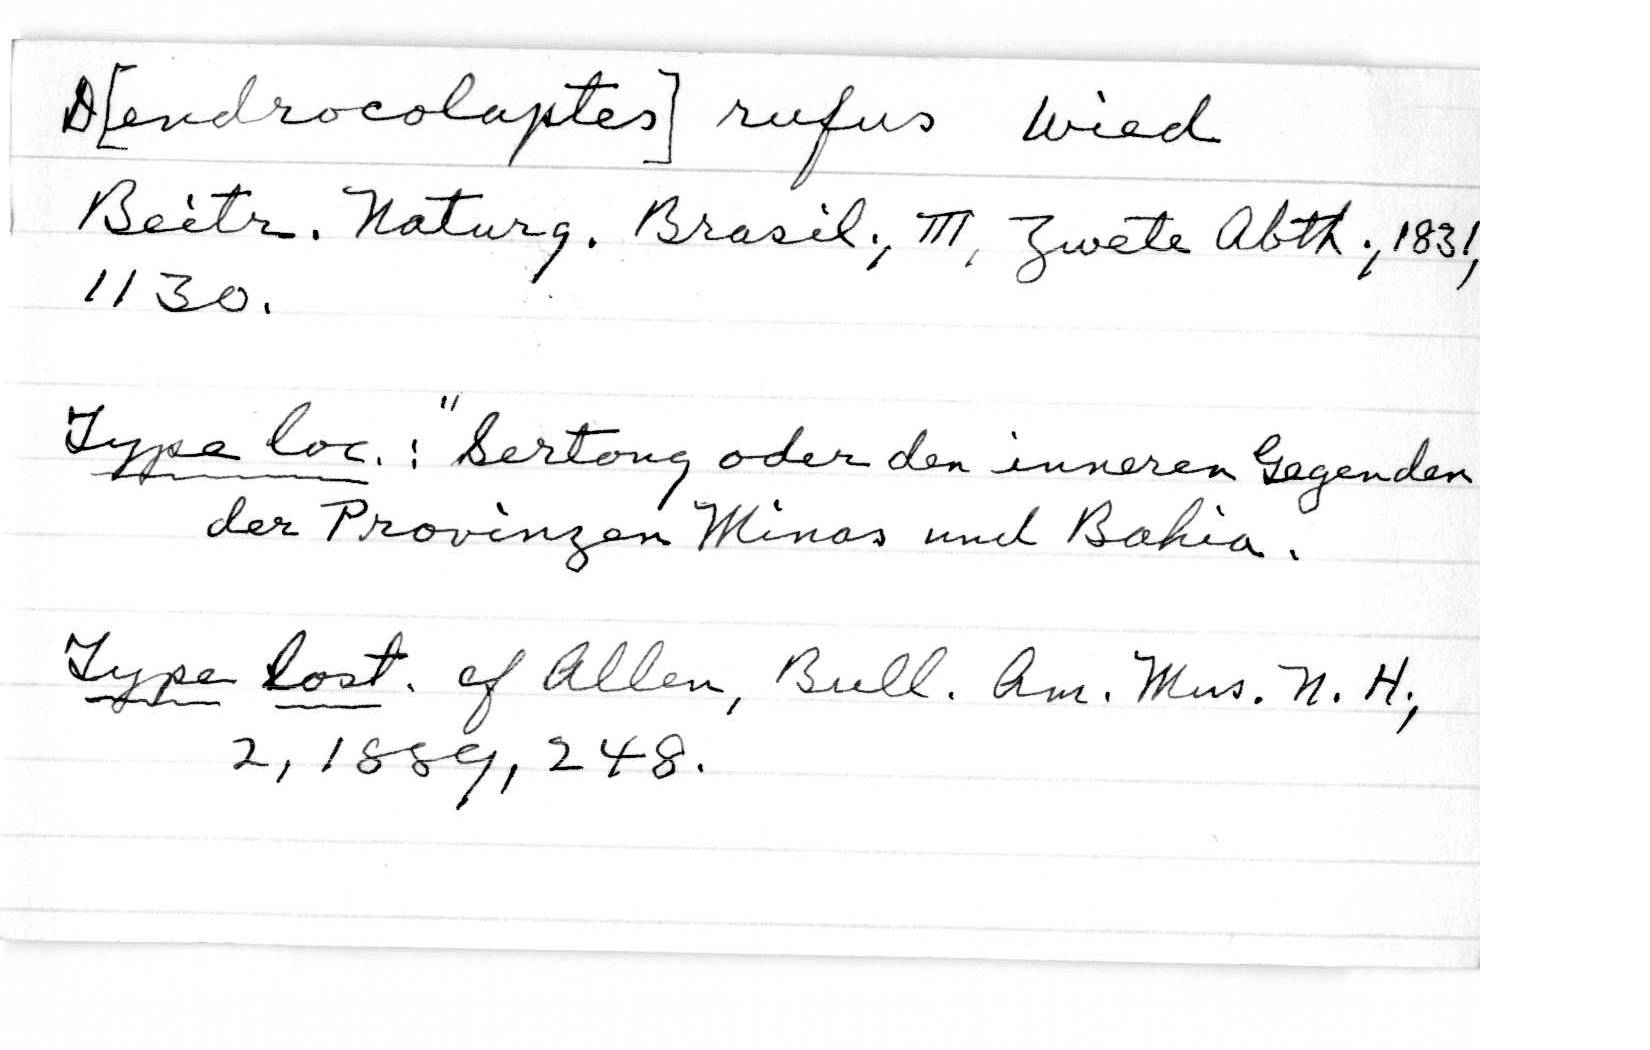 D[endrocolaptes] rufus Wied
Beitr. Naturg. Brasil., III, Zwete Abth., 1831,
1130.
Type loc.: "Sertong oder den inneren Gegenden
der Provinzen Minas und Bahia.
Type lost. cf Allen, Bull. Am. Mus. N. H.,
2, 1889, 248.